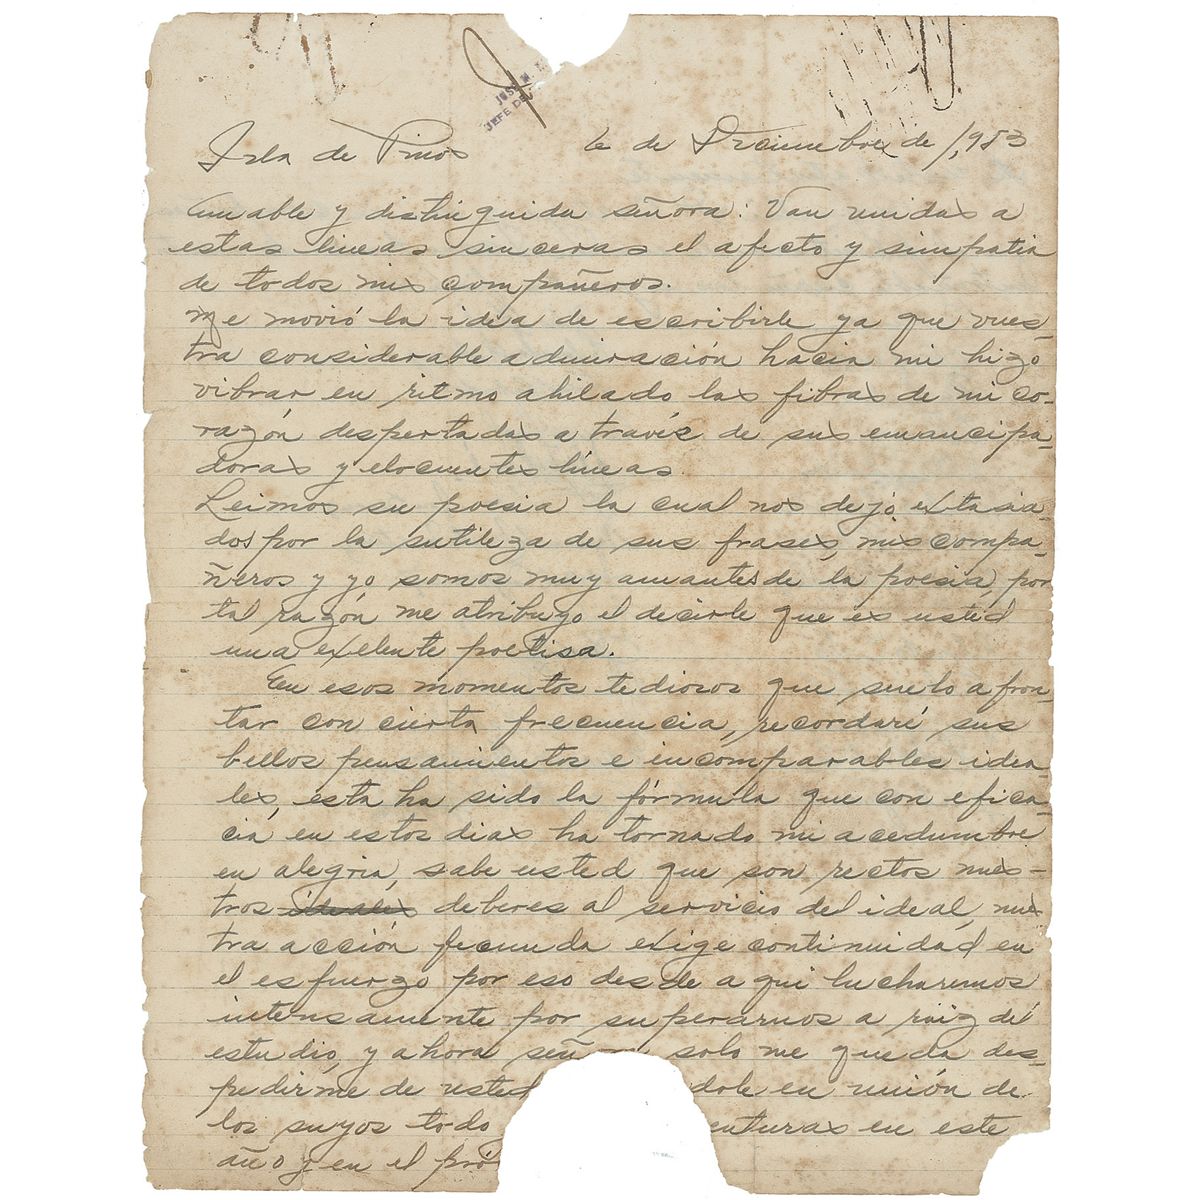 JOSE M.
JEFE DE
Isla de Pinos 6 de Diciembre de 1,953
Amable y distinguida señora: Van unidas a
estas líneas sinceras el afecto y simpatia
de todos mis compañeros.
Me movió la idea de escribirle ya que vues-
tra considerable admiración hacia mi hizo
vibrar en ritmo ahilado las fibras de mi co-
razón despertadas a través de sus emancipa-
doras y elocuentes líneas.
Leimos su poesia la cual nos dejó extasia-
dos por la sutileza de sus frases, mis compa-
ñeros y yo somos muy amantes de la poesia, por
tal razón me atribuyo el decirle que es usted
una exelente poetisa.
En esos momentos tediosos que suelo afron-
tar con cierta frecuencia, recordaré sus
bellos pensamientos e incomparables idea-
les, esta ha sido la fórmula que con efica-
cia, en estos dias ha tornado mi acedumbre
en alegria, sabe usted que son rectos nues-
tros ideales deberes al servicio del ideal, nues
tra acción fecunda exige continuidad en
el esfuerzo por eso desde aqui lucharemos
intensamente por superarnos a raiz del
estudio, y ahora señ solo me queda des-
pedirme de usted dole en unión de
los suyos todo enturas en este
año y en el pró